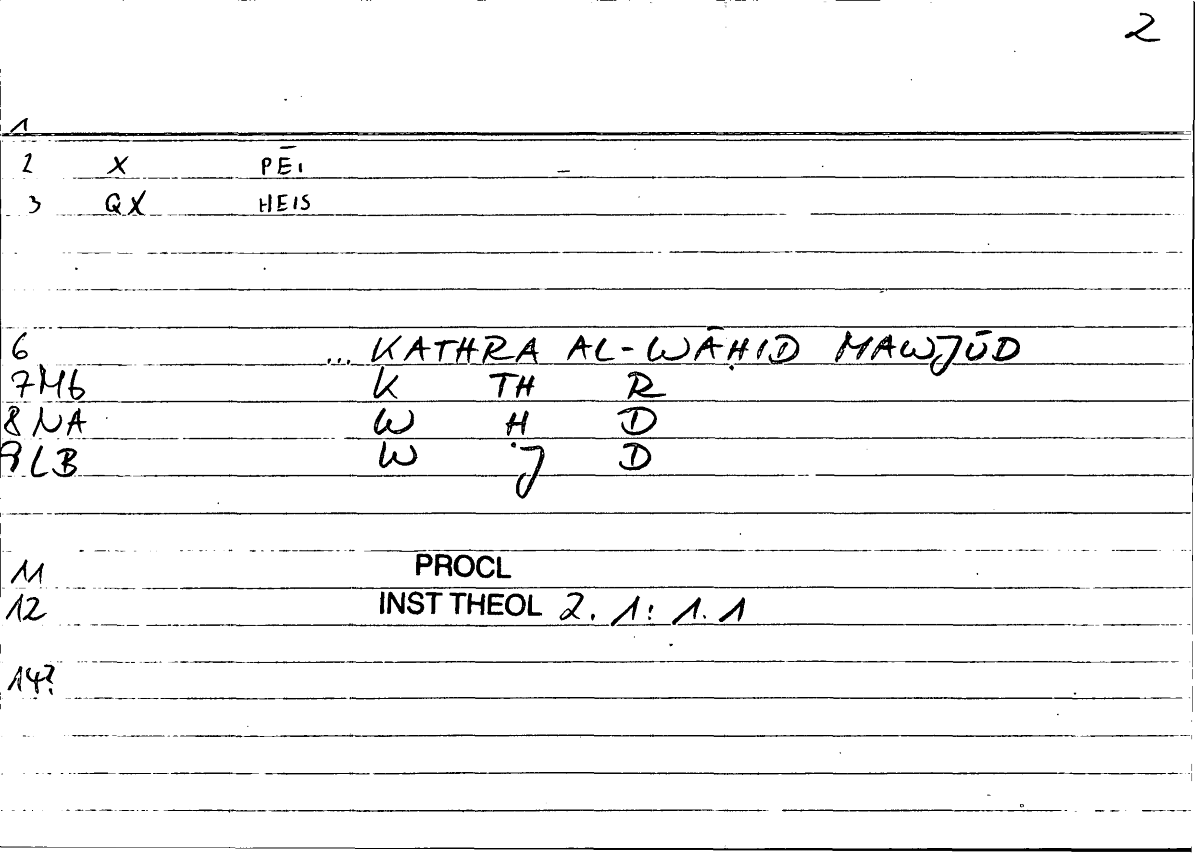 2
1
2 X PĒI
3 QX HEIS
6 ... KATHRA AL-WĀḤID MAWJŪD
7 M6 K TH R
8 NA W Ḥ D
9 LB W J D
11 PROCL
12 INST THEOL 2. 1: 1. 1
14?